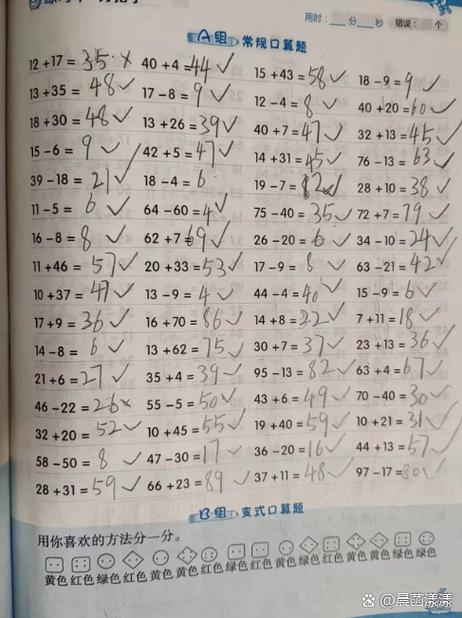 用时：__分__秒 错误：__个
A组 常规口算题
12+17=35× 40+4=44✓ 15+43=58✓ 18-9=9✓
13+35=48✓ 17-8=9✓ 12-4=8✓ 40+20=60✓
18+30=48✓ 13+26=39✓ 40+7=47✓ 32+13=45✓
15-6=9✓ 42+5=47✓ 14+31=45✓ 76-13=63✓
39-18=21✓ 18-4=6 19-7=82× 28+10=38✓
11-5=6✓ 64-60=4✓ 75-40=35✓ 72+7=79✓
16-8=8✓ 62+7=69✓ 26-20=6✓ 34-10=24✓
11+46=57✓ 20+33=53✓ 17-9=8✓ 63-21=42✓
10+37=47✓ 13-9=4✓ 44-4=40✓ 15-9=6✓
17+9=36✓ 16+70=86✓ 14+8=22✓ 7+11=18✓
14-8=6✓ 13+62=75✓ 30+7=37✓ 23+13=36✓
21+6=27✓ 35+4=39✓ 95-13=82✓ 63+4=67✓
46-22=26× 55-5=50✓ 43+6=49✓ 70-40=30✓
32+20=52✓ 10+45=55✓ 19+40=59✓ 10+21=31✓
58-50=8✓ 47-30=17✓ 36-20=16✓ 44+13=57✓
28+31=59✓ 66+23=89✓ 37+11=48✓ 97-17=80✓
B组 变式口算题
用你喜欢的方法分一分。
黄色 红色 绿色 红色 黄色 黄色 红色 绿色 红色 黄色 绿色 红色 黄色 黄色 绿色 绿色
百家号/晨菡漾漾